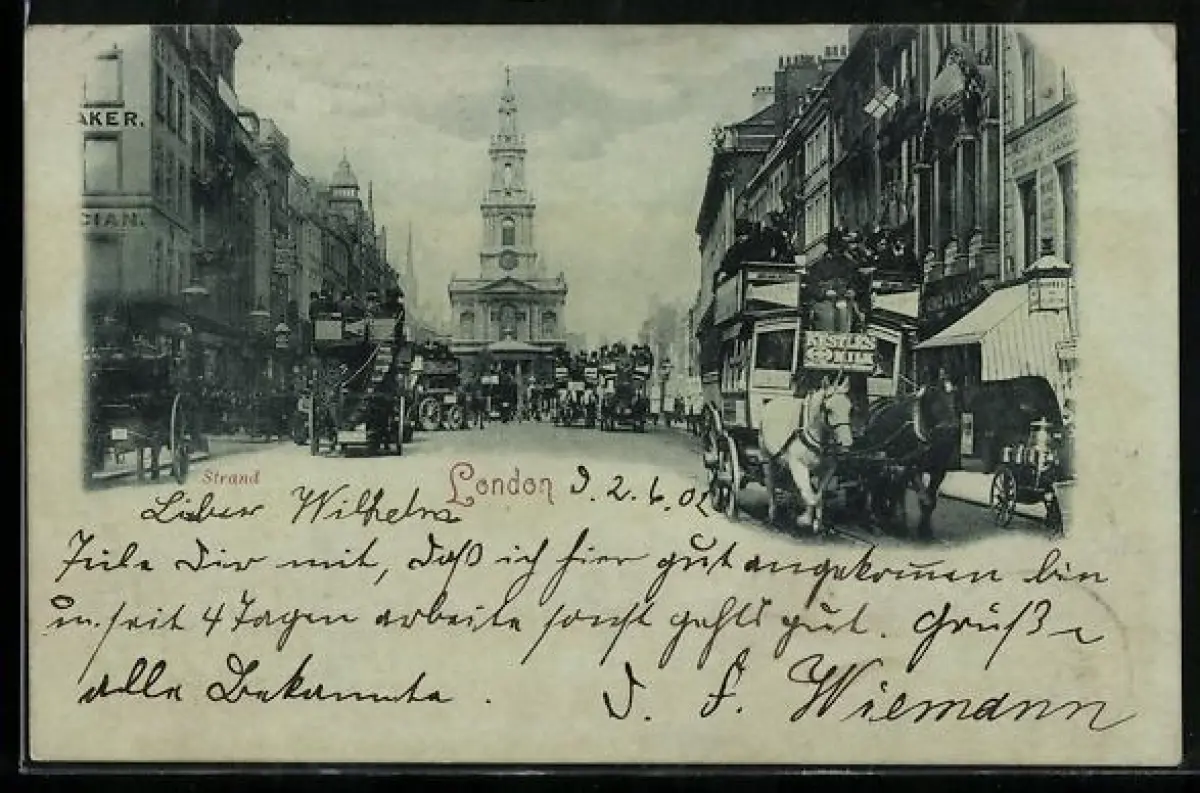 AKER.
CIAN.
NESTLÉ'S
MILK
Strand
London
d. 2. 6. 02
Lieber Wilhelm
Teile Dir mit, daß ich hier gut angekommen bin
u. seit 4 Tagen arbeite sonst gehts gut. Grüße
alle Bekannte.
D. F. Wiemann